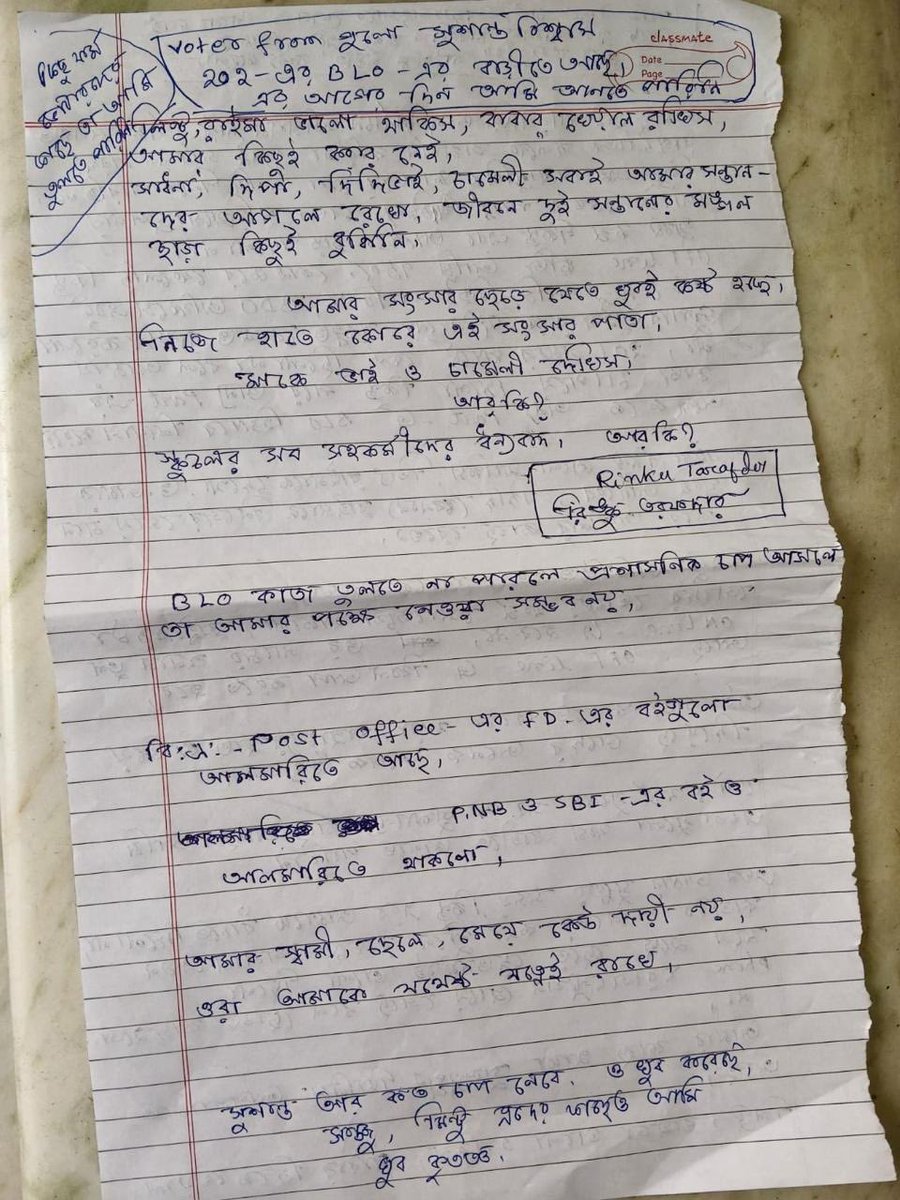 voter from গুলো সুশান্ত বিশ্বাস
classmate
Date
Page
202-এর BLO-এর বাড়ীতে আছে।
এর আগের দিন আমি আনতে পারিনি
কিছু ফর্ম
আছে তা আমি
তুলতে পারিনি
রাইমা ভালো থাকিস, বাবার খেয়াল রাখিস,
আমার কিছুই করার নেই,
দিপা, দিদিভাই, চামেলী সবাই আমার সন্তান-
দের আগলে রেখো, জীবনে দুই সন্তানের মঙ্গল
ছাড়া কিছুই বুঝিনি।
আমার সংসার ছেড়ে যেতে খুবই কষ্ট হচ্ছে,
নিজে হাতে কোরে এই সংসার পাতা,
মাকে ভাই ও চামেলী দেখিস,
আর কি?
স্কুলের সব সহকর্মীদের ধন্যবাদ, আর কি?
Rinku Tarafdar
রিঙ্কু তরফদার
BLO কাজ তুলতে না পারলে প্রশাসনিক চাপ আসলে
তা আমার পক্ষে নেওয়া সম্ভব নয়,
বি:দ্র:- Post Office-এর FD-এর বইগুলো
আলমারিতে আছে,
PNB ও SBI-এর বই ও
আলমারিতে থাকলো,
আমার স্বামী, ছেলে, মেয়ে কেউ দায়ী নয়,
ওরা আমাকে যথেষ্ট যত্নেই রাখে,
সুশান্ত আর কত চাপ নেবে. ও খুব করেছে,
সঞ্জু, মিন্টু এদের কাছেও আমি
খুব কৃতজ্ঞ.